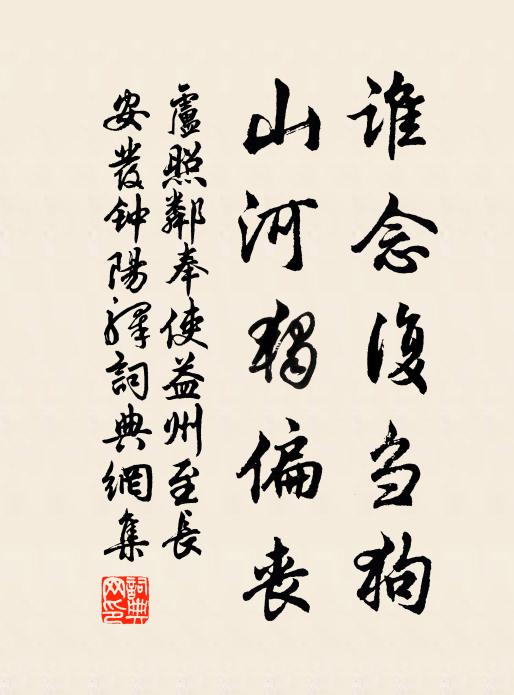 誰念復芻狗
山河獨偏喪
盧照鄰奉使益州至長
安發鍾陽驛詞典網集
詞典網印